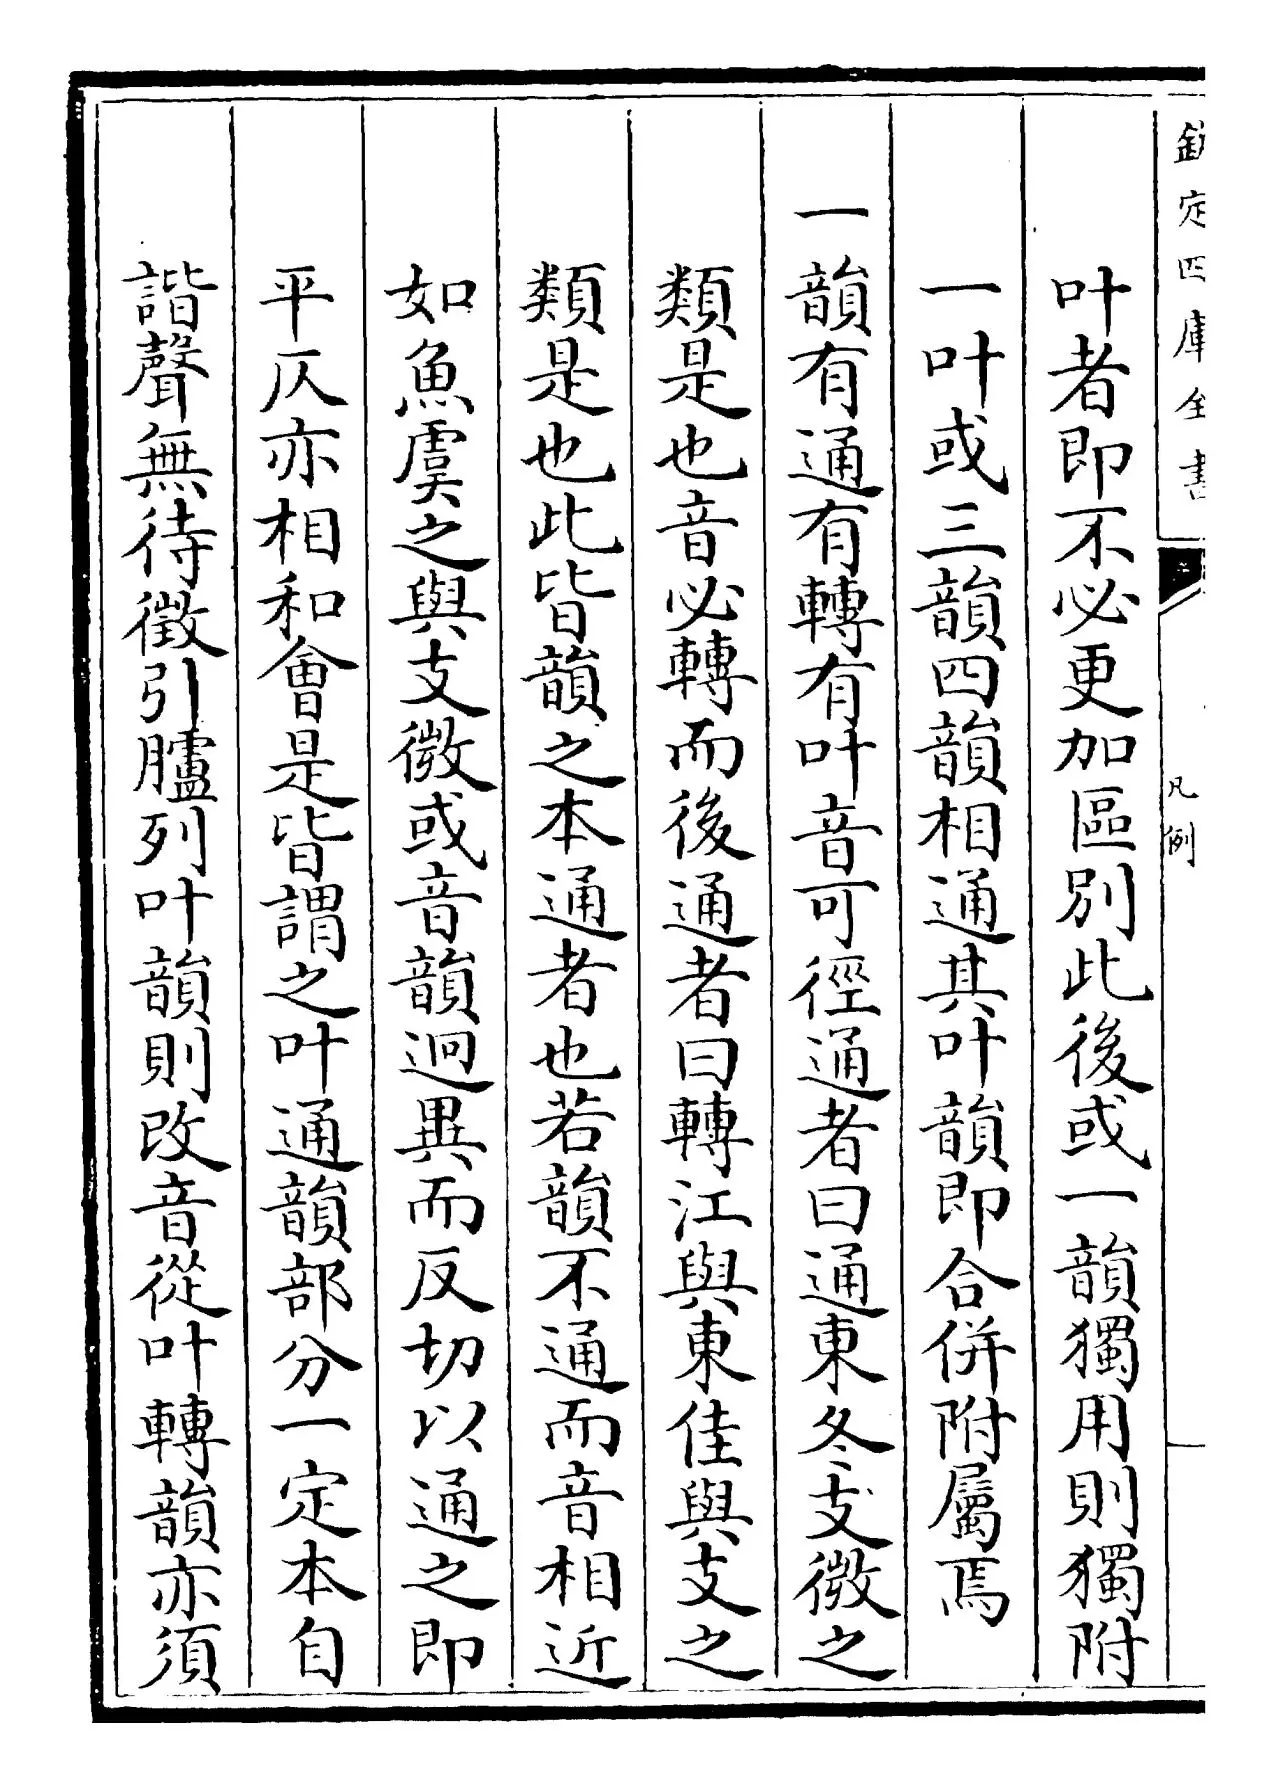 欽定四庫全書
凡例
叶者即不必更加區別此後或一韻獨用則獨附
一叶或三韻四韻相通其叶韻即合併附屬焉
一韻有通有轉有叶音可徑通者曰通東冬支微之
類是也音必轉而後通者曰轉江與東佳與支之
類是也此皆韻之本通者也若韻不通而音相近
如魚虞之與支微或音韻迥異而反切以通之即
平仄亦相和會是皆謂之叶通韻部分一定本自
諧聲無待徵引臚列叶韻則改音從叶轉韻亦須